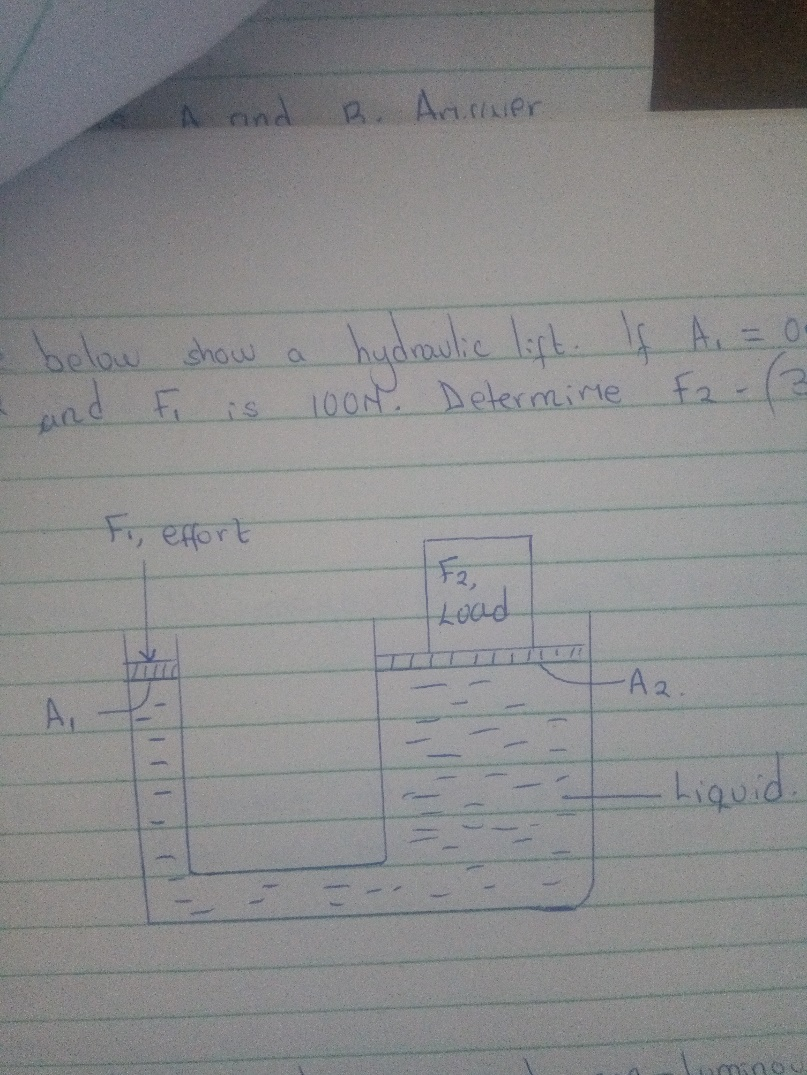 A and B. Answer
below show a hydraulic lift. If A₁ = 0
and F₁ is 100N. Determine F₂ - (3
F₁, effort
F₂,
Load
A₂.
A₁
Liquid.